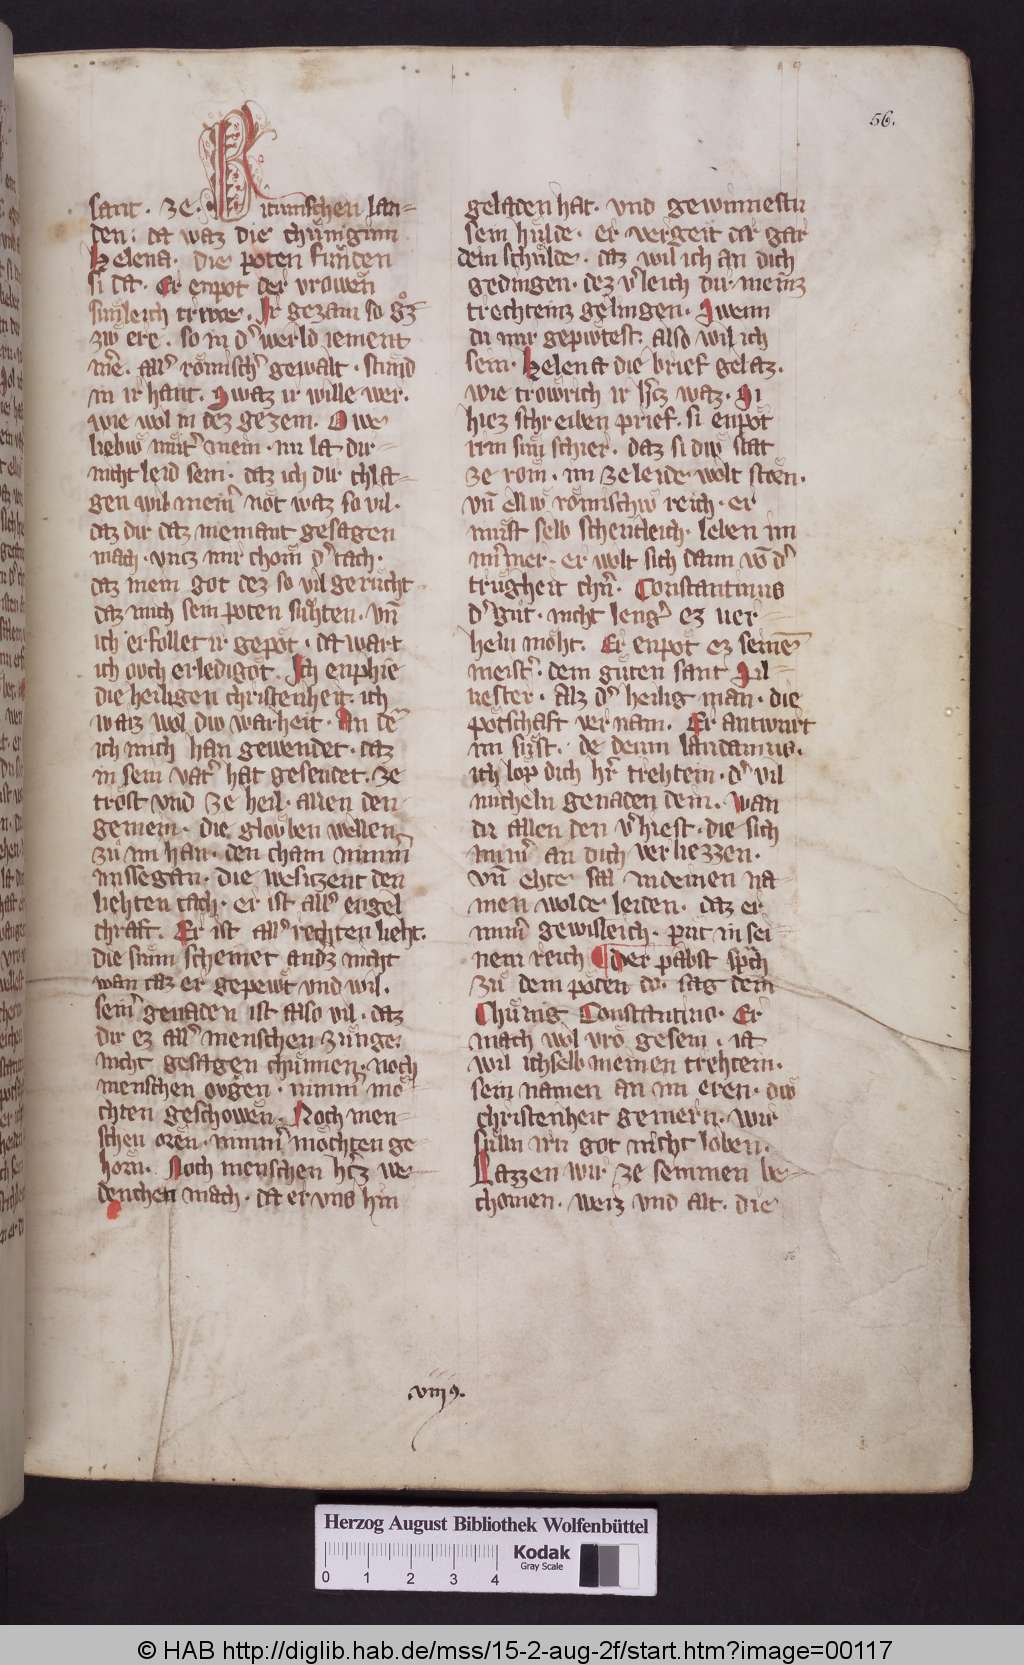 56.
sant · ze · Kritunschen lan-
den · da waz die chünginn
Helena · die poten funden
si da · Er enpot der vrowen
sunleich triwe · Ir gezam so gͦz
zw ere · so in dˀ werld iement
mˀe · allˀ römischˀ gewalt · stünd
in ir hant · Swaz ir wille wer ·
wie wol in dez gezem · O we
liebw mütˀ mein · nu la dir
nicht leid sein · daz ich dir chla-
gen wil meinˀ not waz so vil ·
daz dir daz niemant gesagen
mach · vntz mir chom dˀ tach ·
daz mein got dez so vil gerucht
daz mich sein poten suchten · vn̄
ich erfollet ir gepot · da wart
ich ovch erledigot · Ich enphie
die heiligen christenheit · ich
waiz wol diw warheit · An dē
ich mich han gewendet · daz
in sein vatˀ hat gesendet · ze
trost vnd ze heil · allen den
gemein · die glouben wellen
zů im han · den chain nimmˀ
missegan · die wesitzent den
liehten tach · er ist allˀ engel
chraft · Er ist allˀ rechten lieht ·
die sunn scheinet andz nicht
wan daz er gepewt vnd wil ·
seinˀ genaden ist also vil · daz
dir ez allˀ menschen zunge
nicht gesagen chunnen · noch
menschen ovgen · nimmˀ mo
chten geschowen · Noch men-
schen oren · nimmˀ mochten ge
horn · Noch menschen hˀz we
denchen mach · da er vns hin
geladen hat · vnd gewinnestu
sein hulde · er vergeit dir gar
dein schulde · daz wil ich an dich
gedingen · dez vˀleich dir meinz
trechteinz gelingen · Swenn
du mir gepiwtest · also wil ich
sein · Helena die brief gelaz ·
wie trowrich ir hˀcz waz · Si
hiez schreiben prief · si enpot
irm sun schier · daz si diw stat
ze rom · im ze leide wolt stoen ·
vn̄ ellw römischw reich · er
must selb schentleich · leben im
mˀmer · er wolt sich dann võ dˀ
trugheit chˀn · Constantinus
dˀ gut · nicht lengˀ ez ver-
heln moht · Er enpot ez seinē
meistˀ · dem guten sant Sil-
uester · alz dˀ heilig man · die
potschaft vernam · Er antwurt
im sust · de deum laudamus ·
ich lop dich hˀr trehtein · dˀ vil
micheln genaden dein · wan
du allen den vˀhiest · die sich
nimˀ an dich verliezzen ·
vn̄ ehte sal in deinen na
men wolde leiden · daz er
nimˀ gewisleich · put in sei
nem reich ¶ Der pabst spˀch
zů dem poten do · sag dem
Chunig Constantino · Er
mach wol vro gesein · ia
wil ich selb meinen trehtein ·
sein namen an im eren · diw
christenheit gemern · wir
sulln irn got nicht loben ·
Lazzen wir ze semmen be-
chomen · weiz vnd alt · die
viij9.
Herzog August Bibliothek Wolfenbüttel
0 1 2 3 4
Kodak
Gray Scale
© HAB http://diglib.hab.de/mss/15-2-aug-2f/start.htm?image=00117